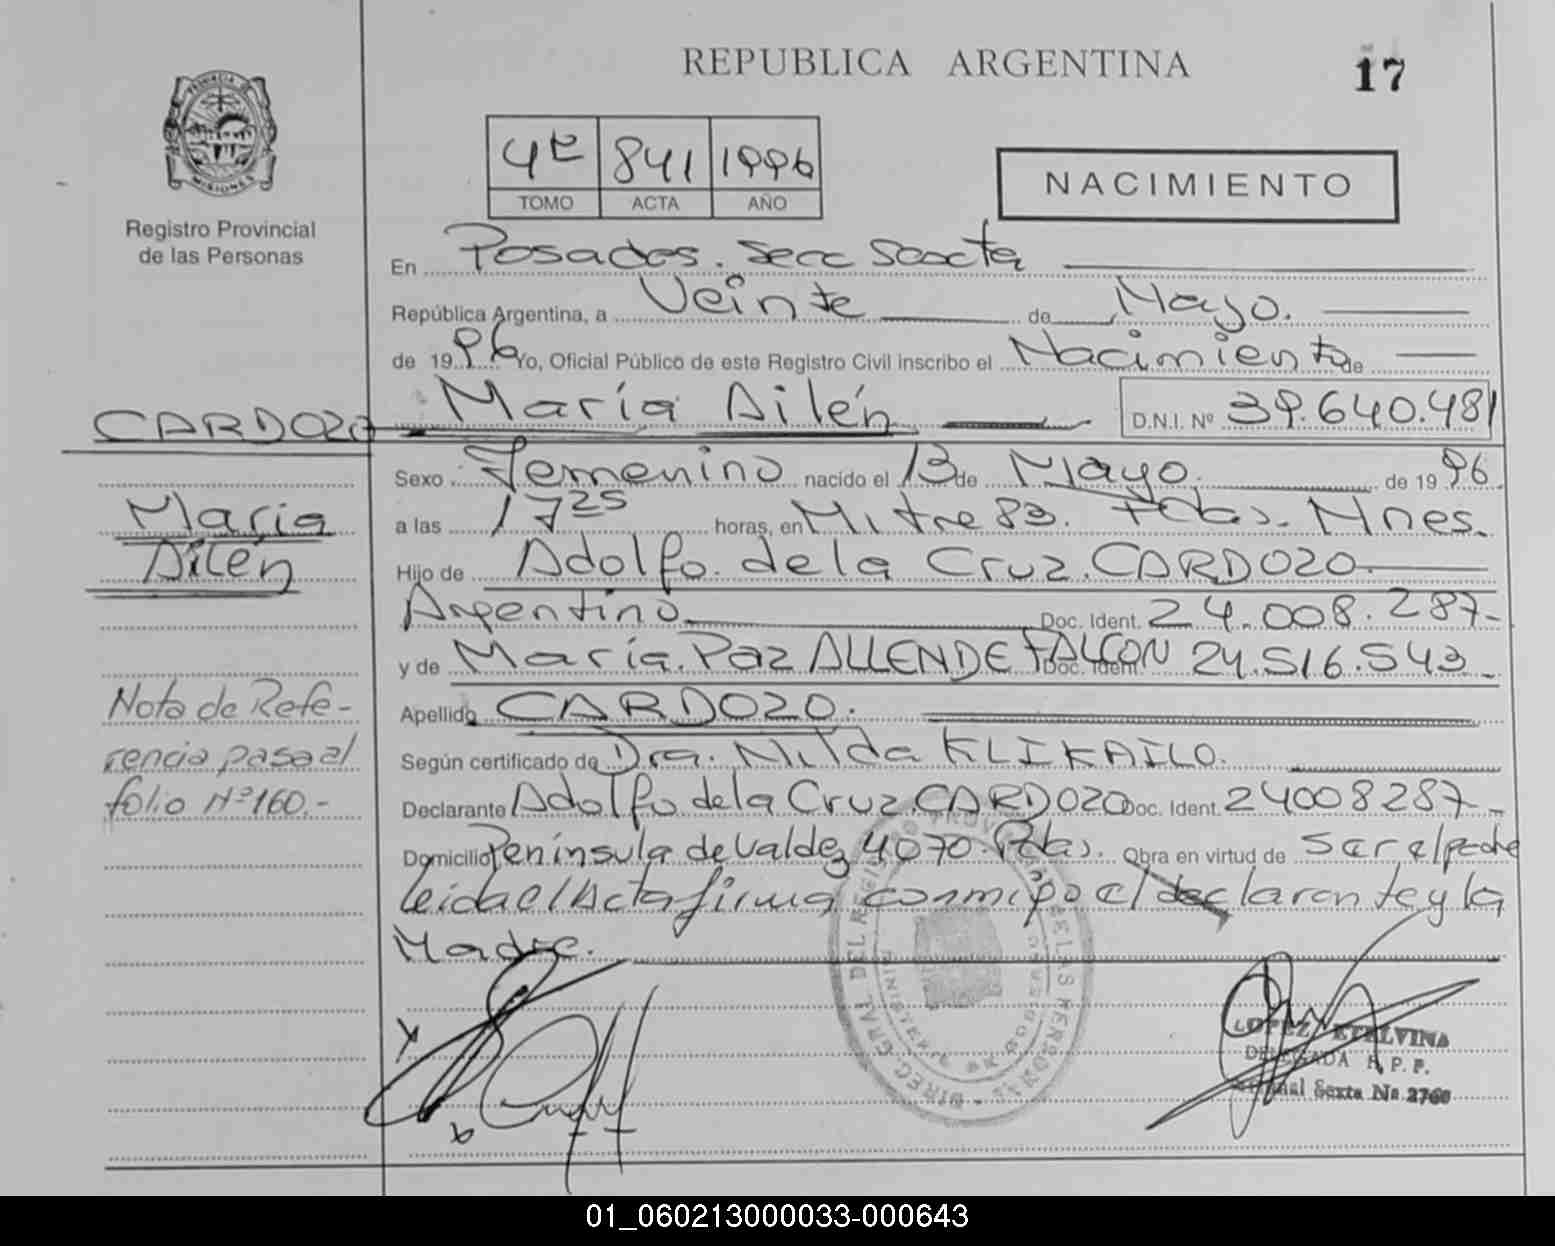 REPUBLICA ARGENTINA
17
PROVINCIA DE
MISIONES
Registro Provincial
de las Personas
4º 841 1996
TOMO ACTA AÑO
NACIMIENTO
En Posadas. Secc Sexta
República Argentina, a Veinte de Mayo.
de 1996 Yo, Oficial Público de este Registro Civil inscribo el Nacimiento de
María Ailén D.N.I. Nº 39.640.481
CARDOZO
María
Ailén
Sexo Femenino nacido el 13 de Mayo. de 1996
a las 17 25 horas, en Mitre 83. Pdas. Mnes.
Hijo de Adolfo. de la Cruz. CARDOZO.
Argentino Doc. Ident. 24.008.287-
y de María. Paz ALLENDE FALCON Doc. Ident. 24.516.543-
Apellido CARDOZO.
Nota de Refe-
rencia pasa al
folio Nº 160.-
Según certificado de Dra. Nilda KLIKAILO.
Declarante Adolfo de la Cruz CARDOZO Doc. Ident. 24008287-
Domicilio Península de Valdez 4070. Pdas. Obra en virtud de Ser el padre
leida el Acta firma conmigo el declarante y la
Madre.
DIREC. GRAL. DEL REGISTRO PROVINCIAL DE LAS PERSONAS
MINISTERIO DE GOBIERNO
LOPEZ ETELVINA
DELEGADA R.P.P.
Sexta Nº 2760
01_060213000033-000643